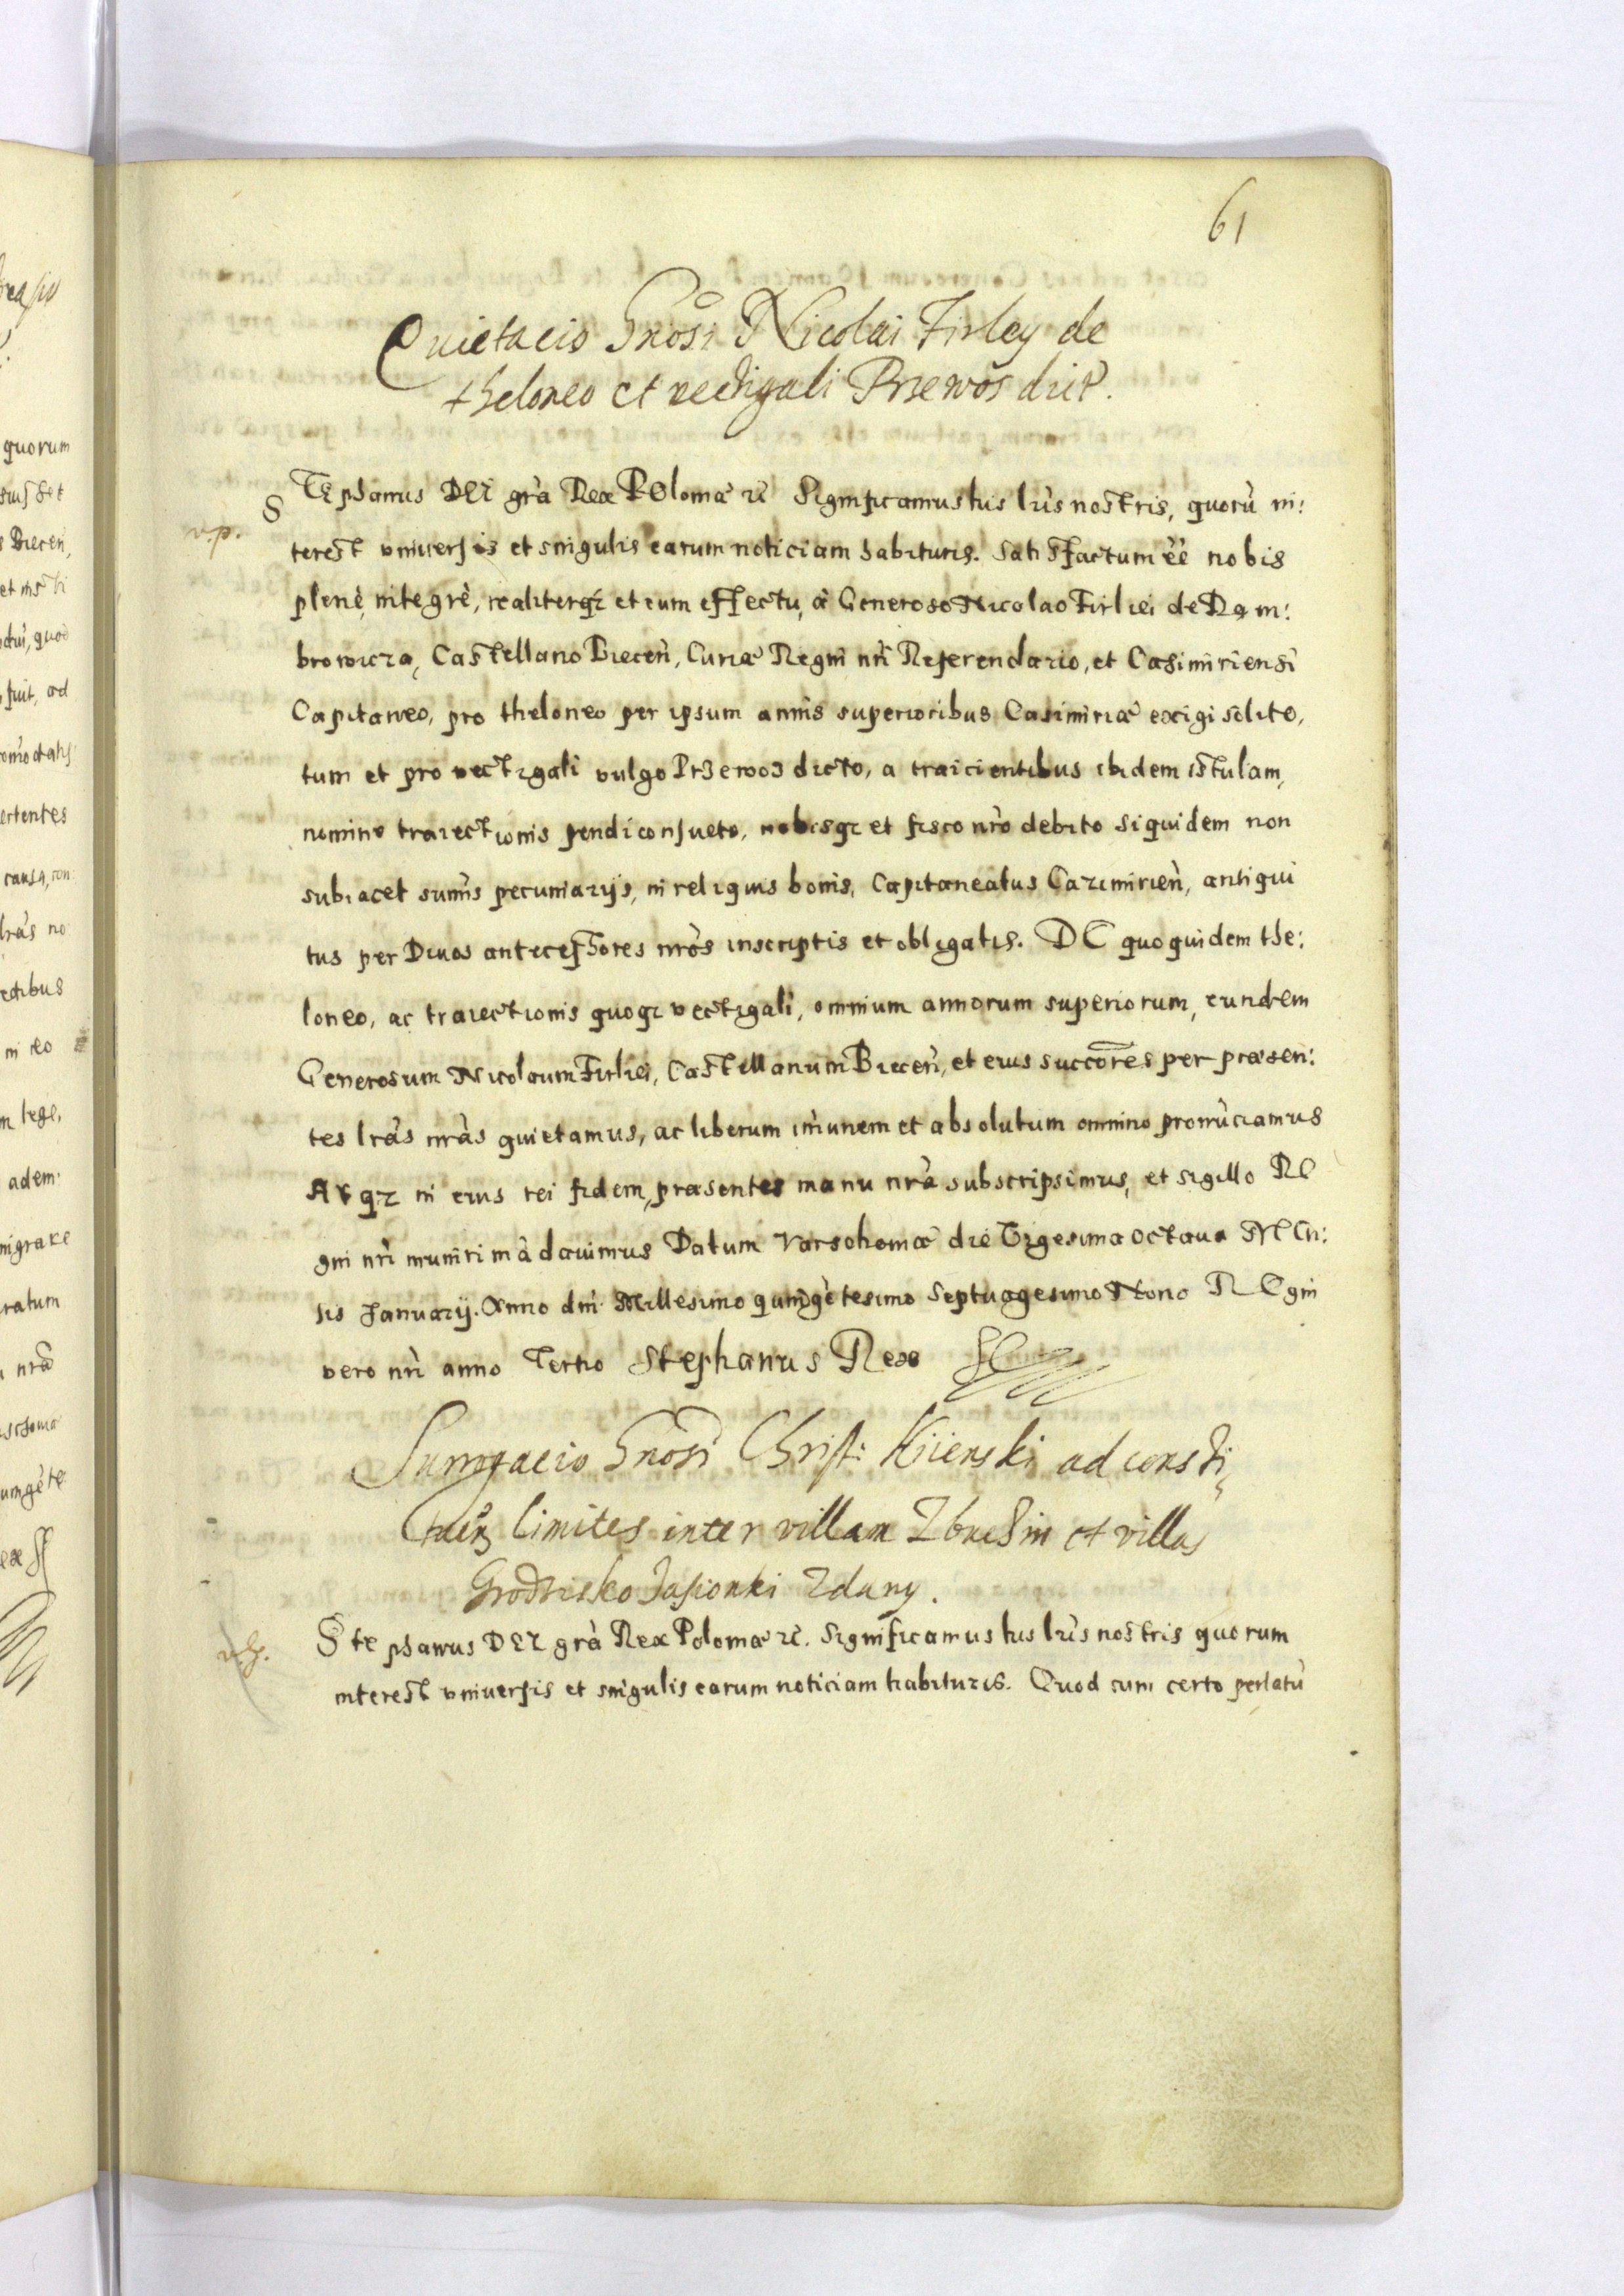 61
Quietacio Gnosi Nicolai Firley de
theloneo et vectigali Przewos dict.
v.p.
STEphanus DEI grà Rex POloniæ etc Significamus his lrìs nostris, quorù in:
terest vniuersis et singulis earum noticiam habituris. Satisfactum èè nobis
plenè, integrè, realiterq; et cum effectu, à Generoso Nicolao Firliei de Dąm:
browicza, Castellano Biecen̄, Curiæ Regni nrì Referendario, et Casimiriensi
Capitaneo, pro theloneo per ipsum annis superioribus Casimiriæ exigi solito,
tum et pro vectigali vulgo Przewos dicto, a traicientibus ibidem istulam,
nomine traiectionis pendi consueto, nobisq; et fisco nrò debito siquidem non
subiacet sum̄is pecuniarijs, in reliquis bonis, Capitaneatus Cazimirien̄, antiqui
tus per Diuos antecessores nròs inscriptis et obligatis. DE quo quidem the:
loneo, ac traiectionis quoq; vectigali, omnium annorum superiorum, eundem
Generosum Nicolaum Firliei, Castellanum Biecen̄, et eius succores per præsen:
tes lràs nràs quietamus, ac liberum im̄unem et absolutum omnino pronūciamus
Atq; in eius rei fidem, præsentes manu nrà subscripsimus, et sigillo RE
gni nrì muniri mādauimus Datum Varsohomæ die Vigesima octaua MEn:
sis Januarij. Anno dnì Millesimo quingētesimo Septuagesimo Nono REgni
vero nrì anno Tertio Stephanus Rex
Gnosi Christ: Kiienski ad consti
tuen limites inter villam Zbuchin et villas
Grodzisko Jasionki Zdany.
Stephanus DEI grà Rex Poloniæ etc. Significamus his lrìs nostris quorum
interest vniuersis et singulis earum noticiam habituris. Quod cum certo perlatū